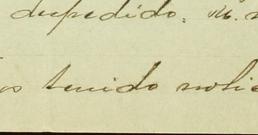 despedido. M.
os tenido notic